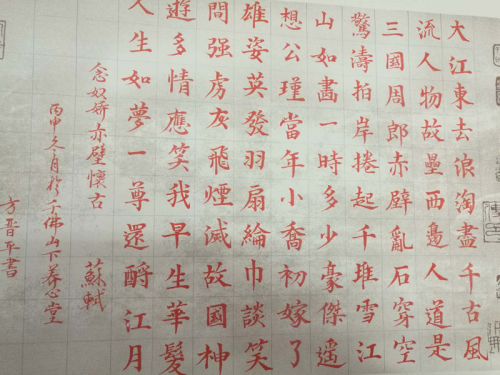 大江東去浪淘盡千古風
流人物故壘西邊人道是
三國周郎赤壁亂石穿空
驚濤拍岸捲起千堆雪江
山如畫一時多少豪傑遥
想公瑾當年小喬初嫁了
雄姿英發羽扇綸巾談笑
間强虜灰飛煙滅故國神
遊多情應笑我早生華髮
人生如夢一尊還酹江月
念奴嬌赤壁懷古 蘇軾
丙申冬月於千佛山下養心堂
方普平書